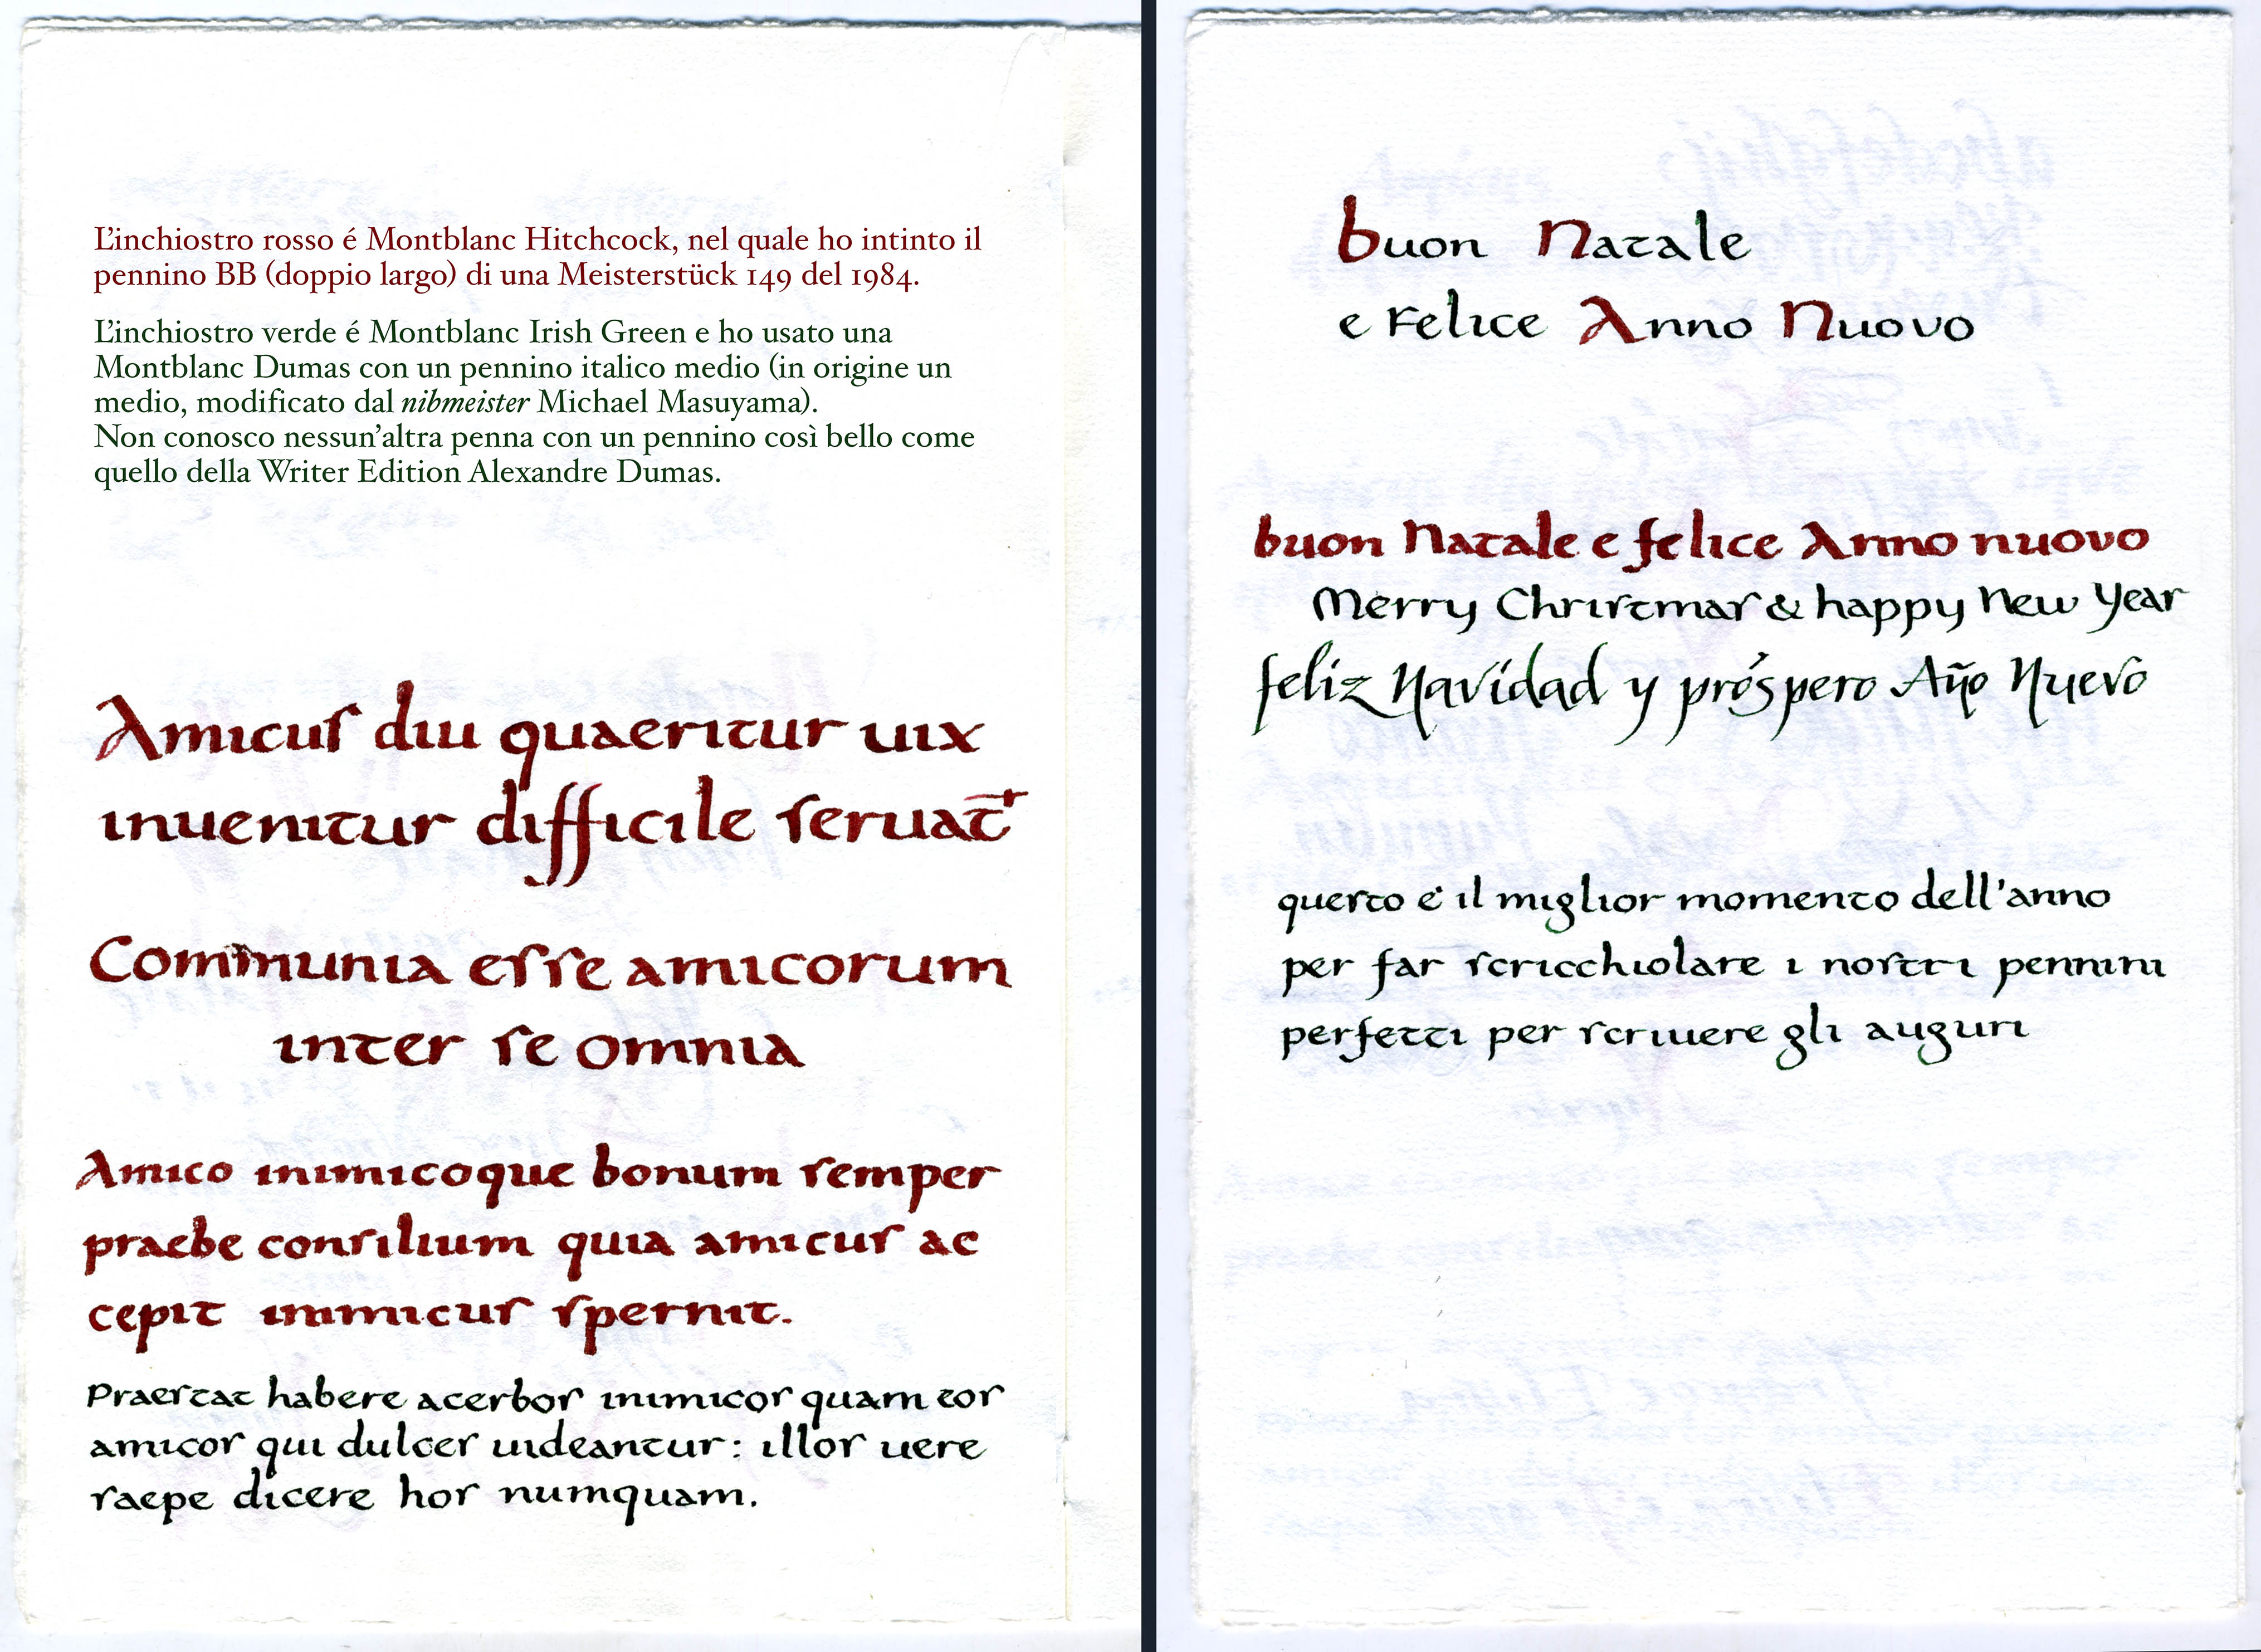 L'inchiostro rosso é Montblanc Hitchcock, nel quale ho intinto il
pennino BB (doppio largo) di una Meisterstück 149 del 1984.
L'inchiostro verde é Montblanc Irish Green e ho usato una
Montblanc Dumas con un pennino italico medio (in origine un
medio, modificato dal nibmeister Michael Masuyama).
Non conosco nessun'altra penna con un pennino così bello come
quello della Writer Edition Alexandre Dumas.
Amicus diu quaeritur uix
inuenitur difficile seruat̄r
Communia esse amicorum
inter se omnia
Amico inimicoque bonum semper
praebe consilium quia amicus ac
cepit inimicus spernit.
Praestat habere acerbos inimicos quam eos
amicos qui dulces uideantur: illos uere
saepe dicere hos numquam.
buon Natale
e Felice Anno Nuovo
buon Natale e felice Anno nuovo
Merry Christmas & happy New Year
feliz Navidad y próspero Año Nuevo
questo è il miglior momento dell'anno
per far scricchiolare i nostri pennini
perfetti per scriuere gli auguri